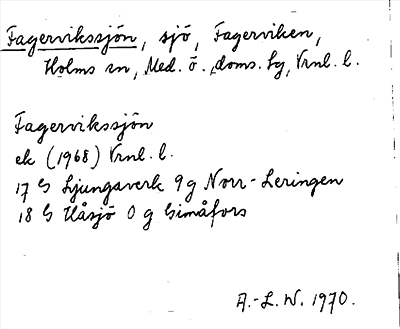 Fagervikssjön, sjö, Fagerviken,
Holms sn, Med. ö. doms. hg, Vrnl. l.
Fagervikssjön
ek (1968) Vrnl. l.
17 G Ljungaverk 9 g Norr-Leringen
18 G Håsjö 0 g Gimåfors
A.-L. W. 1970.